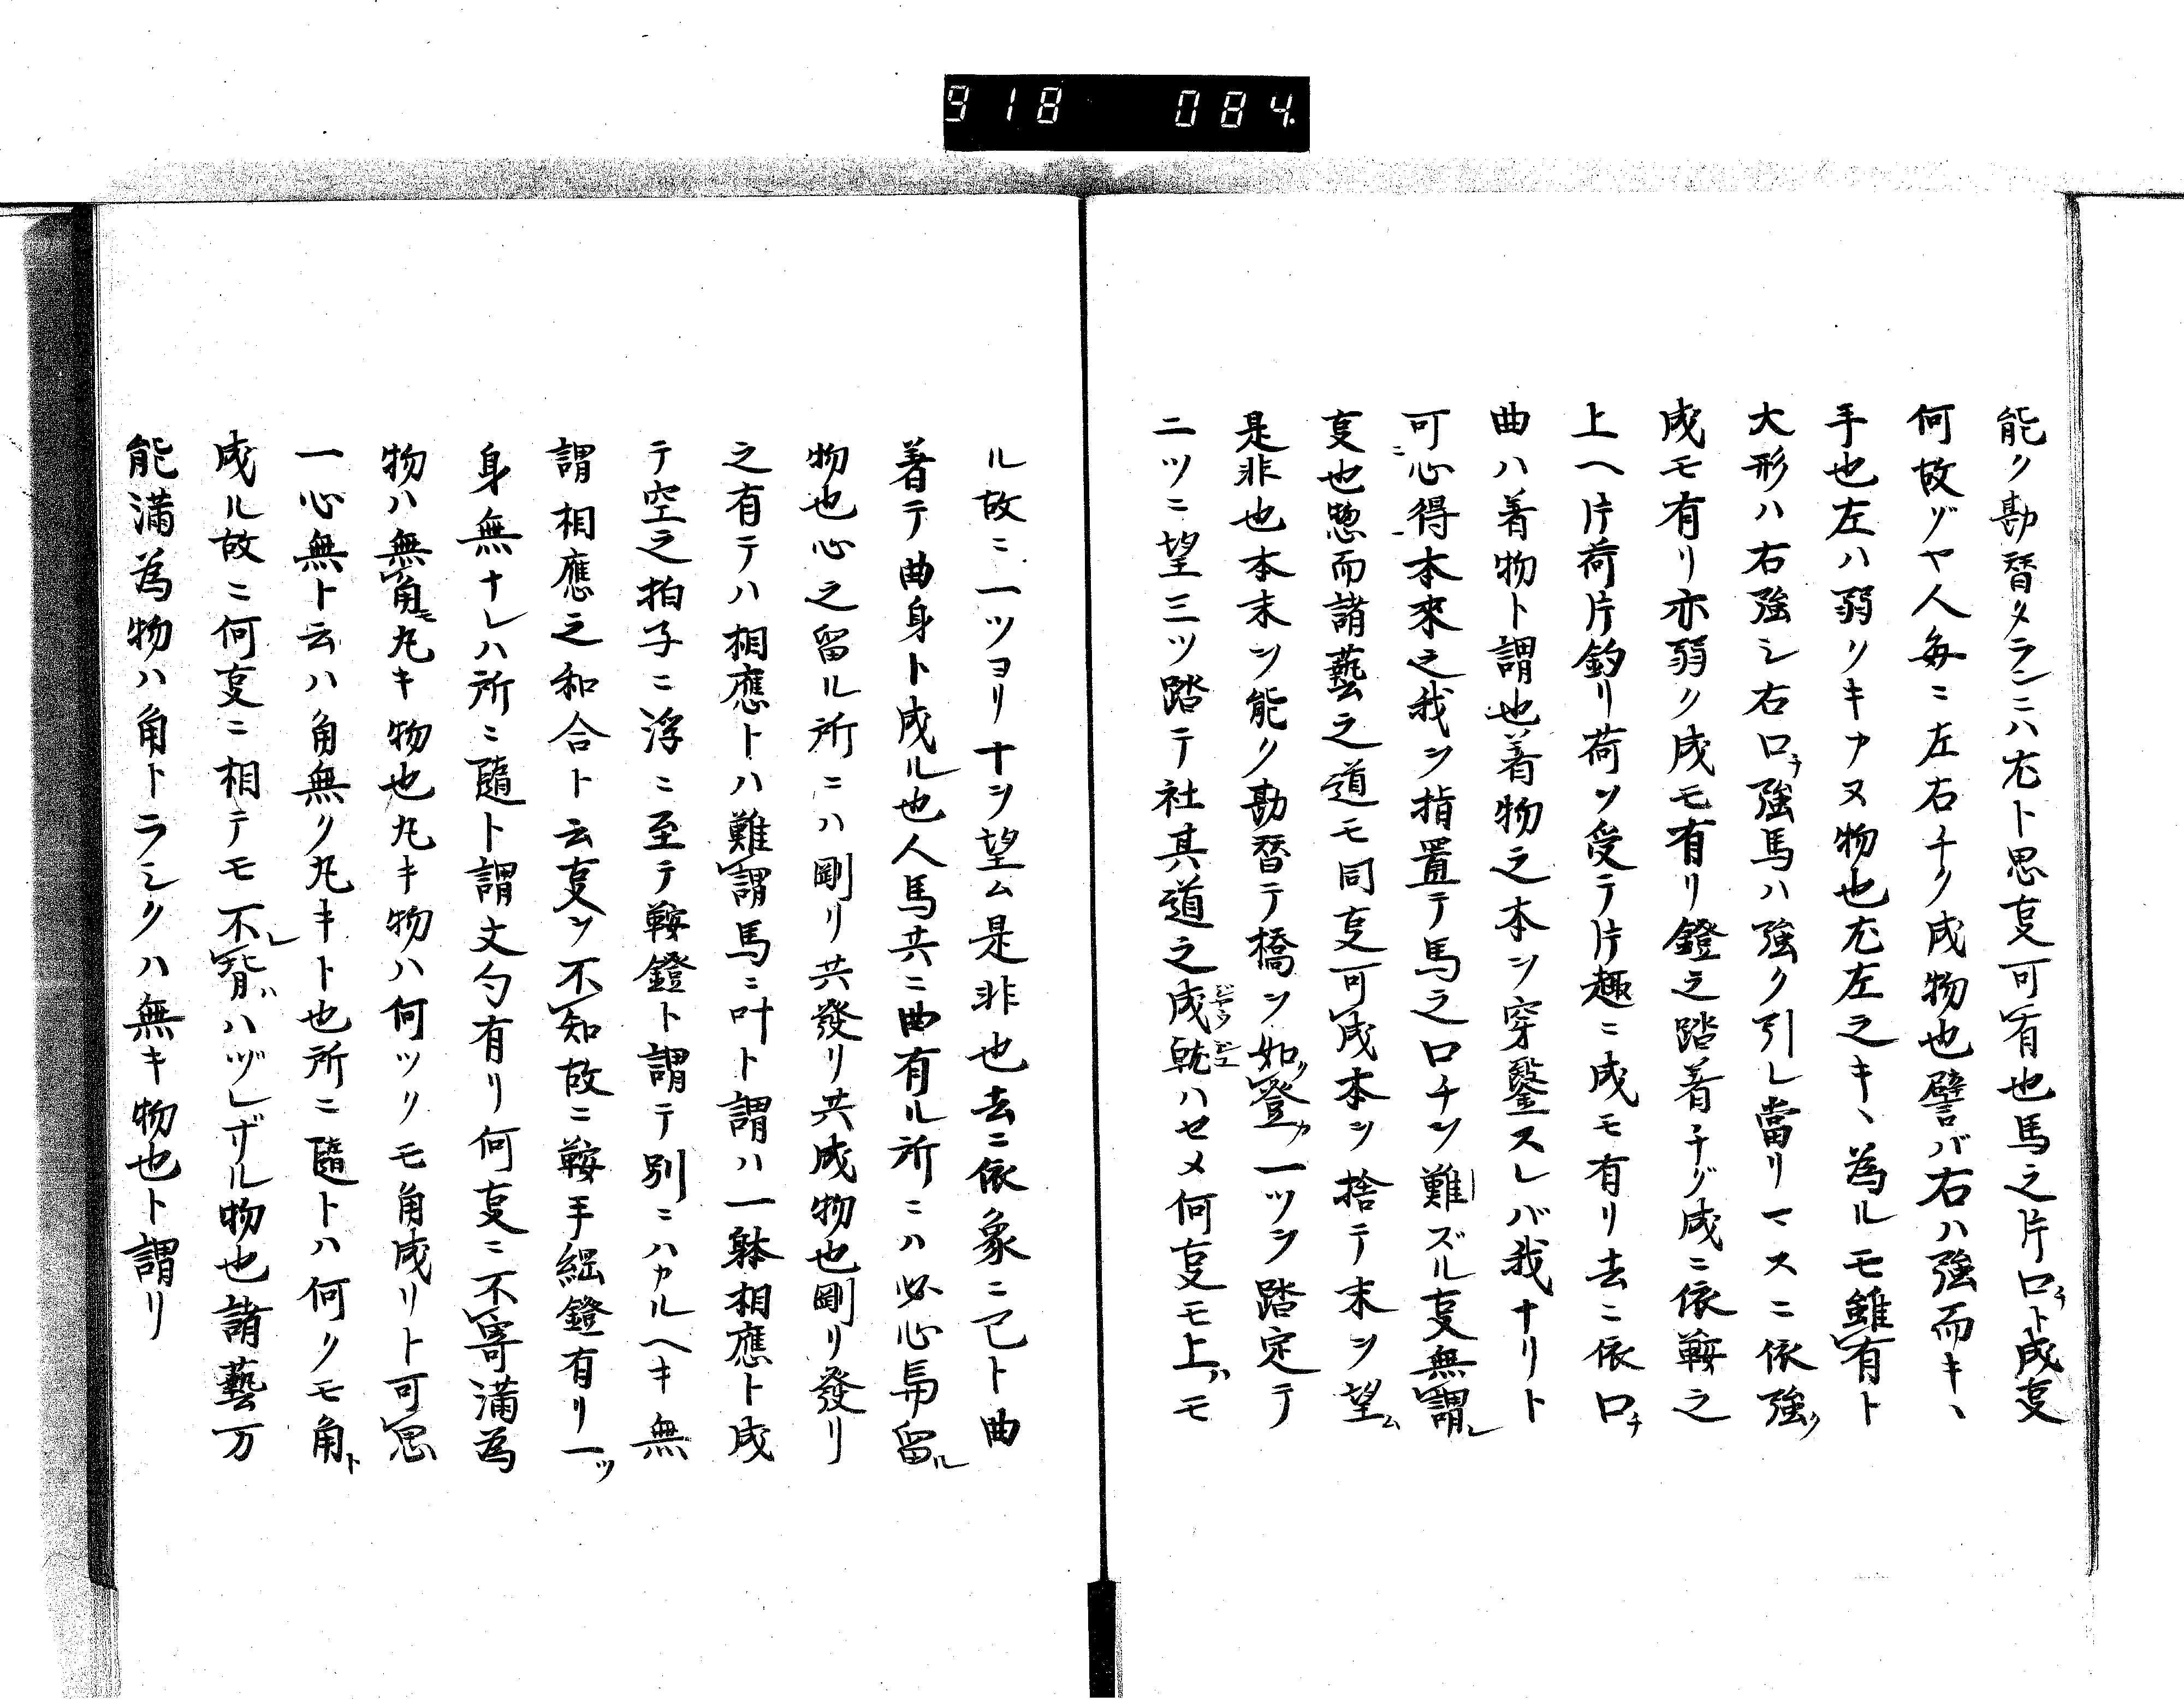 918 084.
能ク勘替タランニハ尤ト思㕝可有也馬之片口チト成㕝
何故ヅヤ人毎ニ左右チク成物也譬バ右ハ強而キヽ
手也左ハ弱リキカヌ物也尤左之キヽ為ルモ雖有ト
大形ハ右強シ右口チ強馬ハ強ク引レ當リマスニ依強ク
成モ有リ亦弱ク成モ有リ鐙之踏着チグ成ニ依鞍之
上ヘ片荷片釣リ荷ヲ受テ片趣ニ成モ有リ去ニ依口チ
曲ハ着物ト謂也着物之本ヲ穿鑿スレバ我ナリト
可心得本來之我ヲ指置テ馬之口チヲ難ズル㕝無謂レ
㕝也惣而諸藝之道モ同㕝可成本ヲ捨テ末ヲ望ム
是非也本末ヲ能ク勘替テ橋ヲ如登カ一ツヲ踏定テ
二ツニ望三ツ踏テ社其道之成就ハセメ何㕝モ上ハモ
ル故ニ一ツヨリ十ヲ望ム是非也去ニ依象ニ已ト曲
着テ曲身ト成ル也人馬共ニ曲有ル所ニハ必心馬留ル
物也心之留ル所ニハ剛リ共發リ共成物也剛リ發リ
之有テハ相應トハ難謂馬ニ叶ト謂ハ一躰相應ト成
テ空之拍子ニ浮ニ至テ鞍鐙ト謂テ別ニハカルヘキ無
謂相應之和合ト云㕝ヲ不知故ニ鞍手綱鐙有リ一ツ
身無ナレハ所ニ隨ト謂文勺有リ何㕝ニ不寄満為
物ハ無角モ丸キ物也丸キ物ハ何ツクモ角成リト可思
一心無ト云ハ角無ク丸キト也所ニ隨トハ何クモ角ト
成ル故ニ何㕝ニ相テモ不背ハハヅレザル物也諸藝万
能満為物ハ角トラシクハ無キ物也ト謂リ